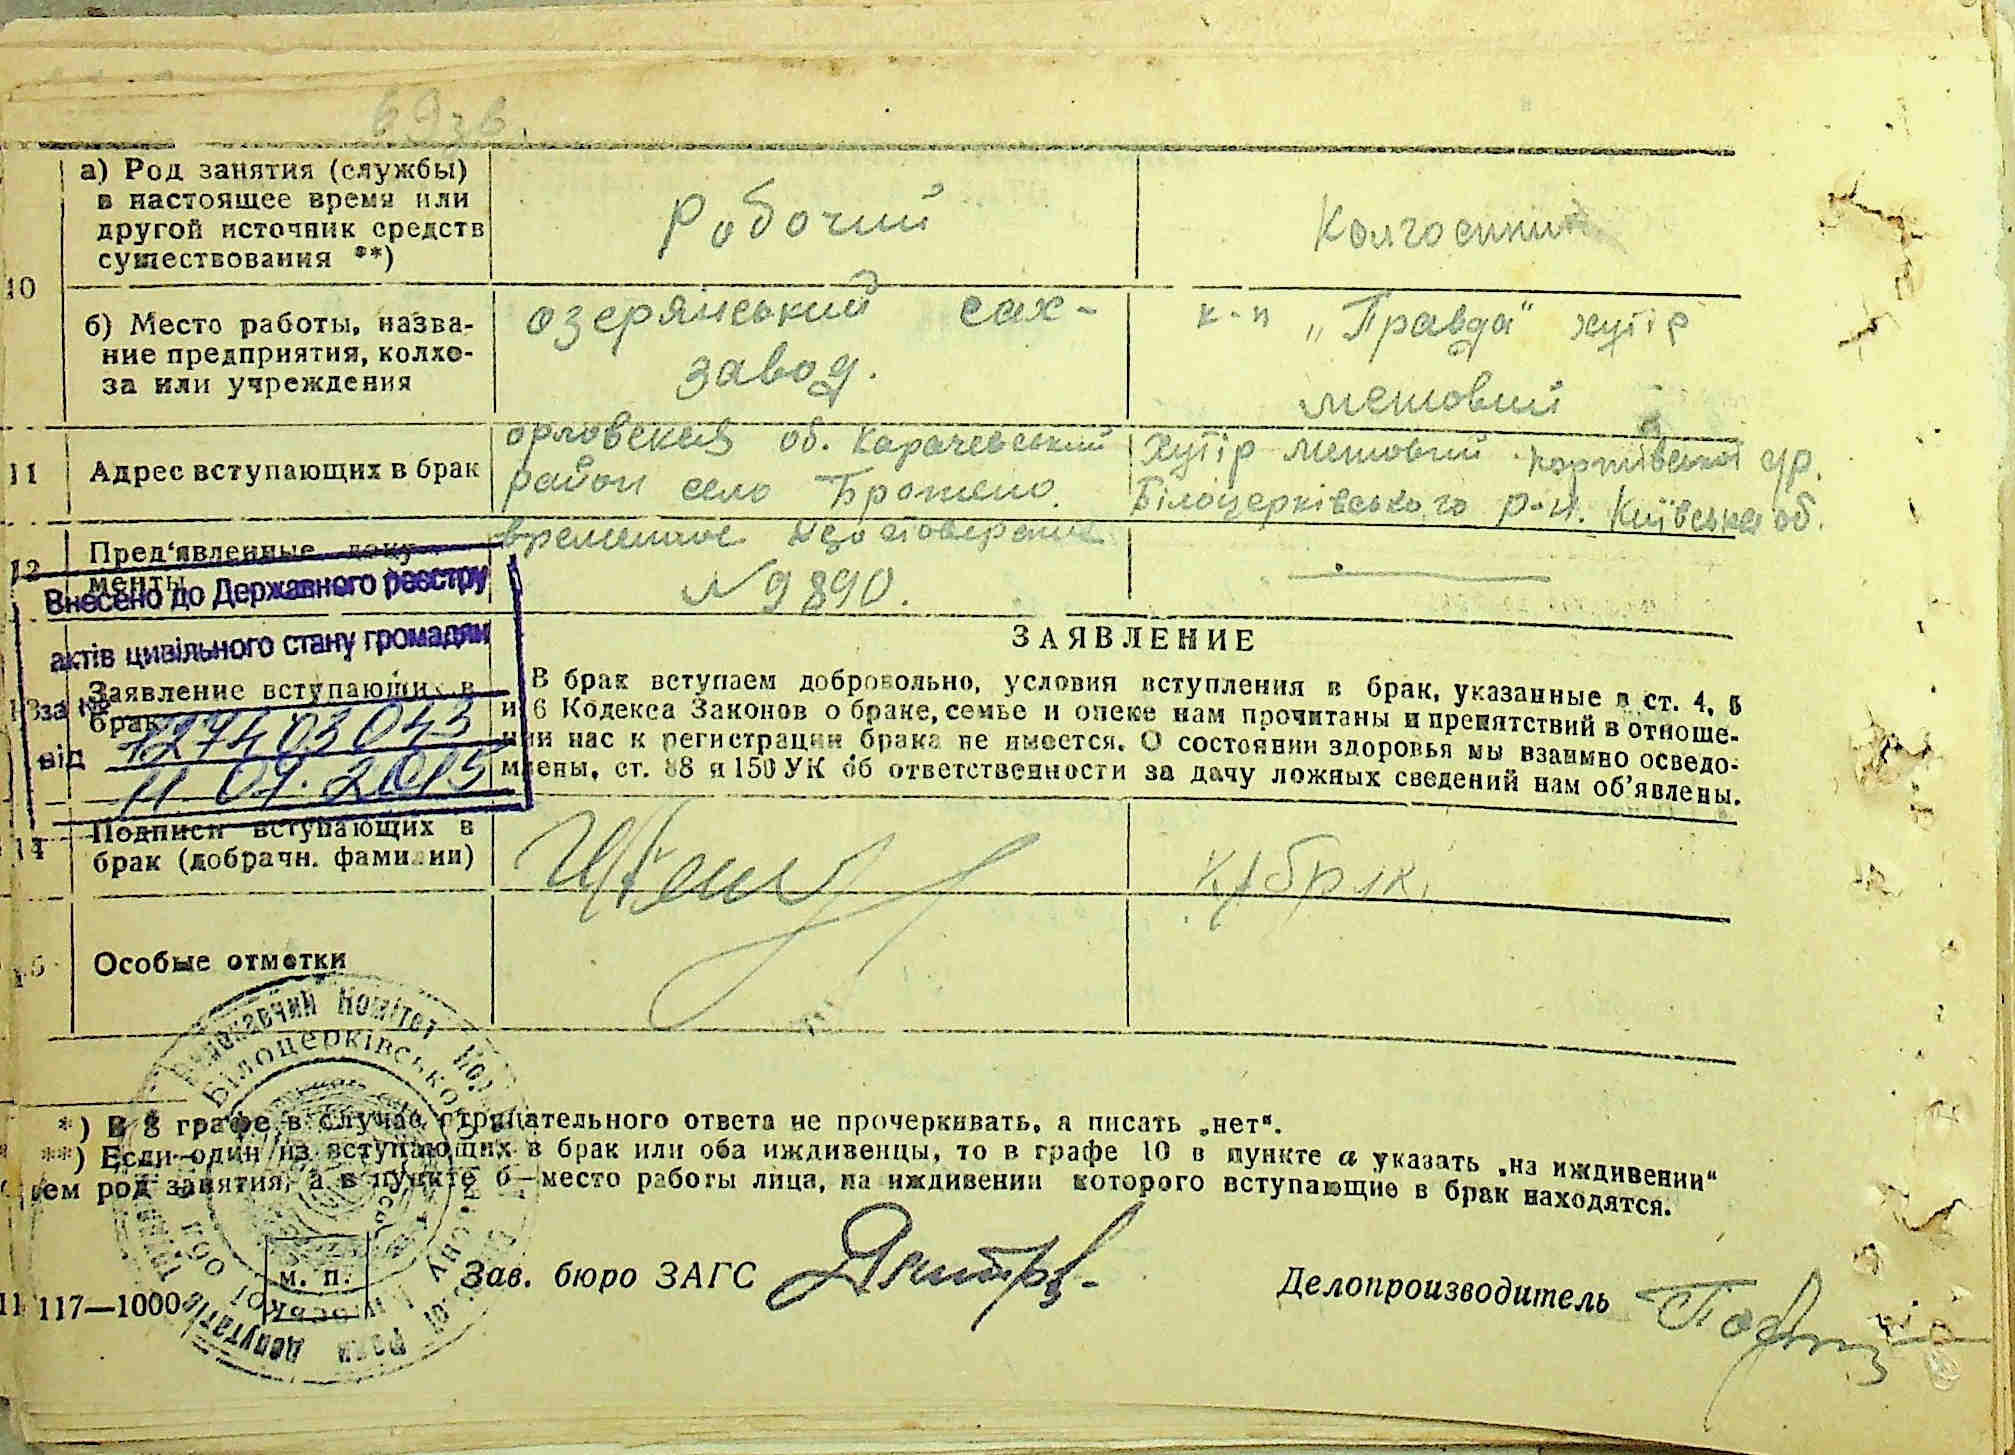 69зв.
10
а) Род занятия (службы)
в настоящее время или
другой источник средств
существования **)
Робочий
Колгоспник
б) Место работы, назва-
ние предприятия, колхо-
за или учреждения
озерянський сах-
завод.
к-п „Правда" хутір
метовий
11
Адрес вступающих в брак
орловская об. Карачевський
район село Брошено.
Хутір метовий
Білоцерківського р-н. Київська об.
12
Пред'явленные доку-
менты
временное удостоверение
№ 9890.
Внесено до Державного реєстру
актів цивільного стану громадян
за №
127403043
від 11 04. 2015
13
Заявление вступающих в
брак
ЗАЯВЛЕНИЕ
В брак вступаем добровольно, условия вступления в брак, указанные в ст. 4, 5
и 6 Кодекса Законов о браке, семье и опеке нам прочитаны и препятствий в отноше-
нии нас к регистрации брака не имеется. О состоянии здоровья мы взаимно осведо-
млены, ст. 88 и 150 УК об ответственности за дачу ложных сведений нам об'явлены.
14
Подписи вступающих в
брак (добрачн. фамилии)
15
Особые отметки
Виконавчий Комітет
Білоцерківсько
депутатів
Ради
*) В 8 графе в случае отрицательного ответа не прочеркивать, а писать „нет".
**) Если один из вступающих в брак или оба иждивенцы, то в графе 10 в пункте а указать „на иждивении"
чем род занятия, а в пункте б—место работы лица, на иждивении которого вступающие в брак находятся.
м. п.
Зав. бюро ЗАГС
Делопроизводитель
117—1000